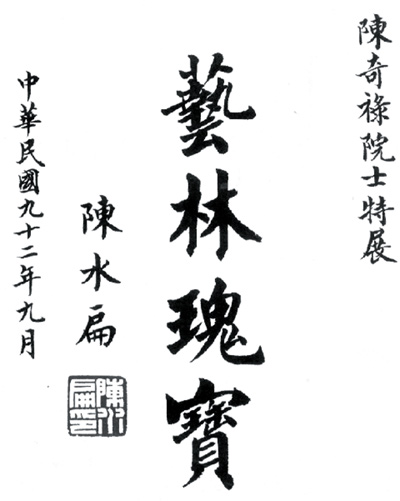 陳奇祿院士特展
藝林瑰寶
陳水扁
陳水扁印
中華民國九十二年九月